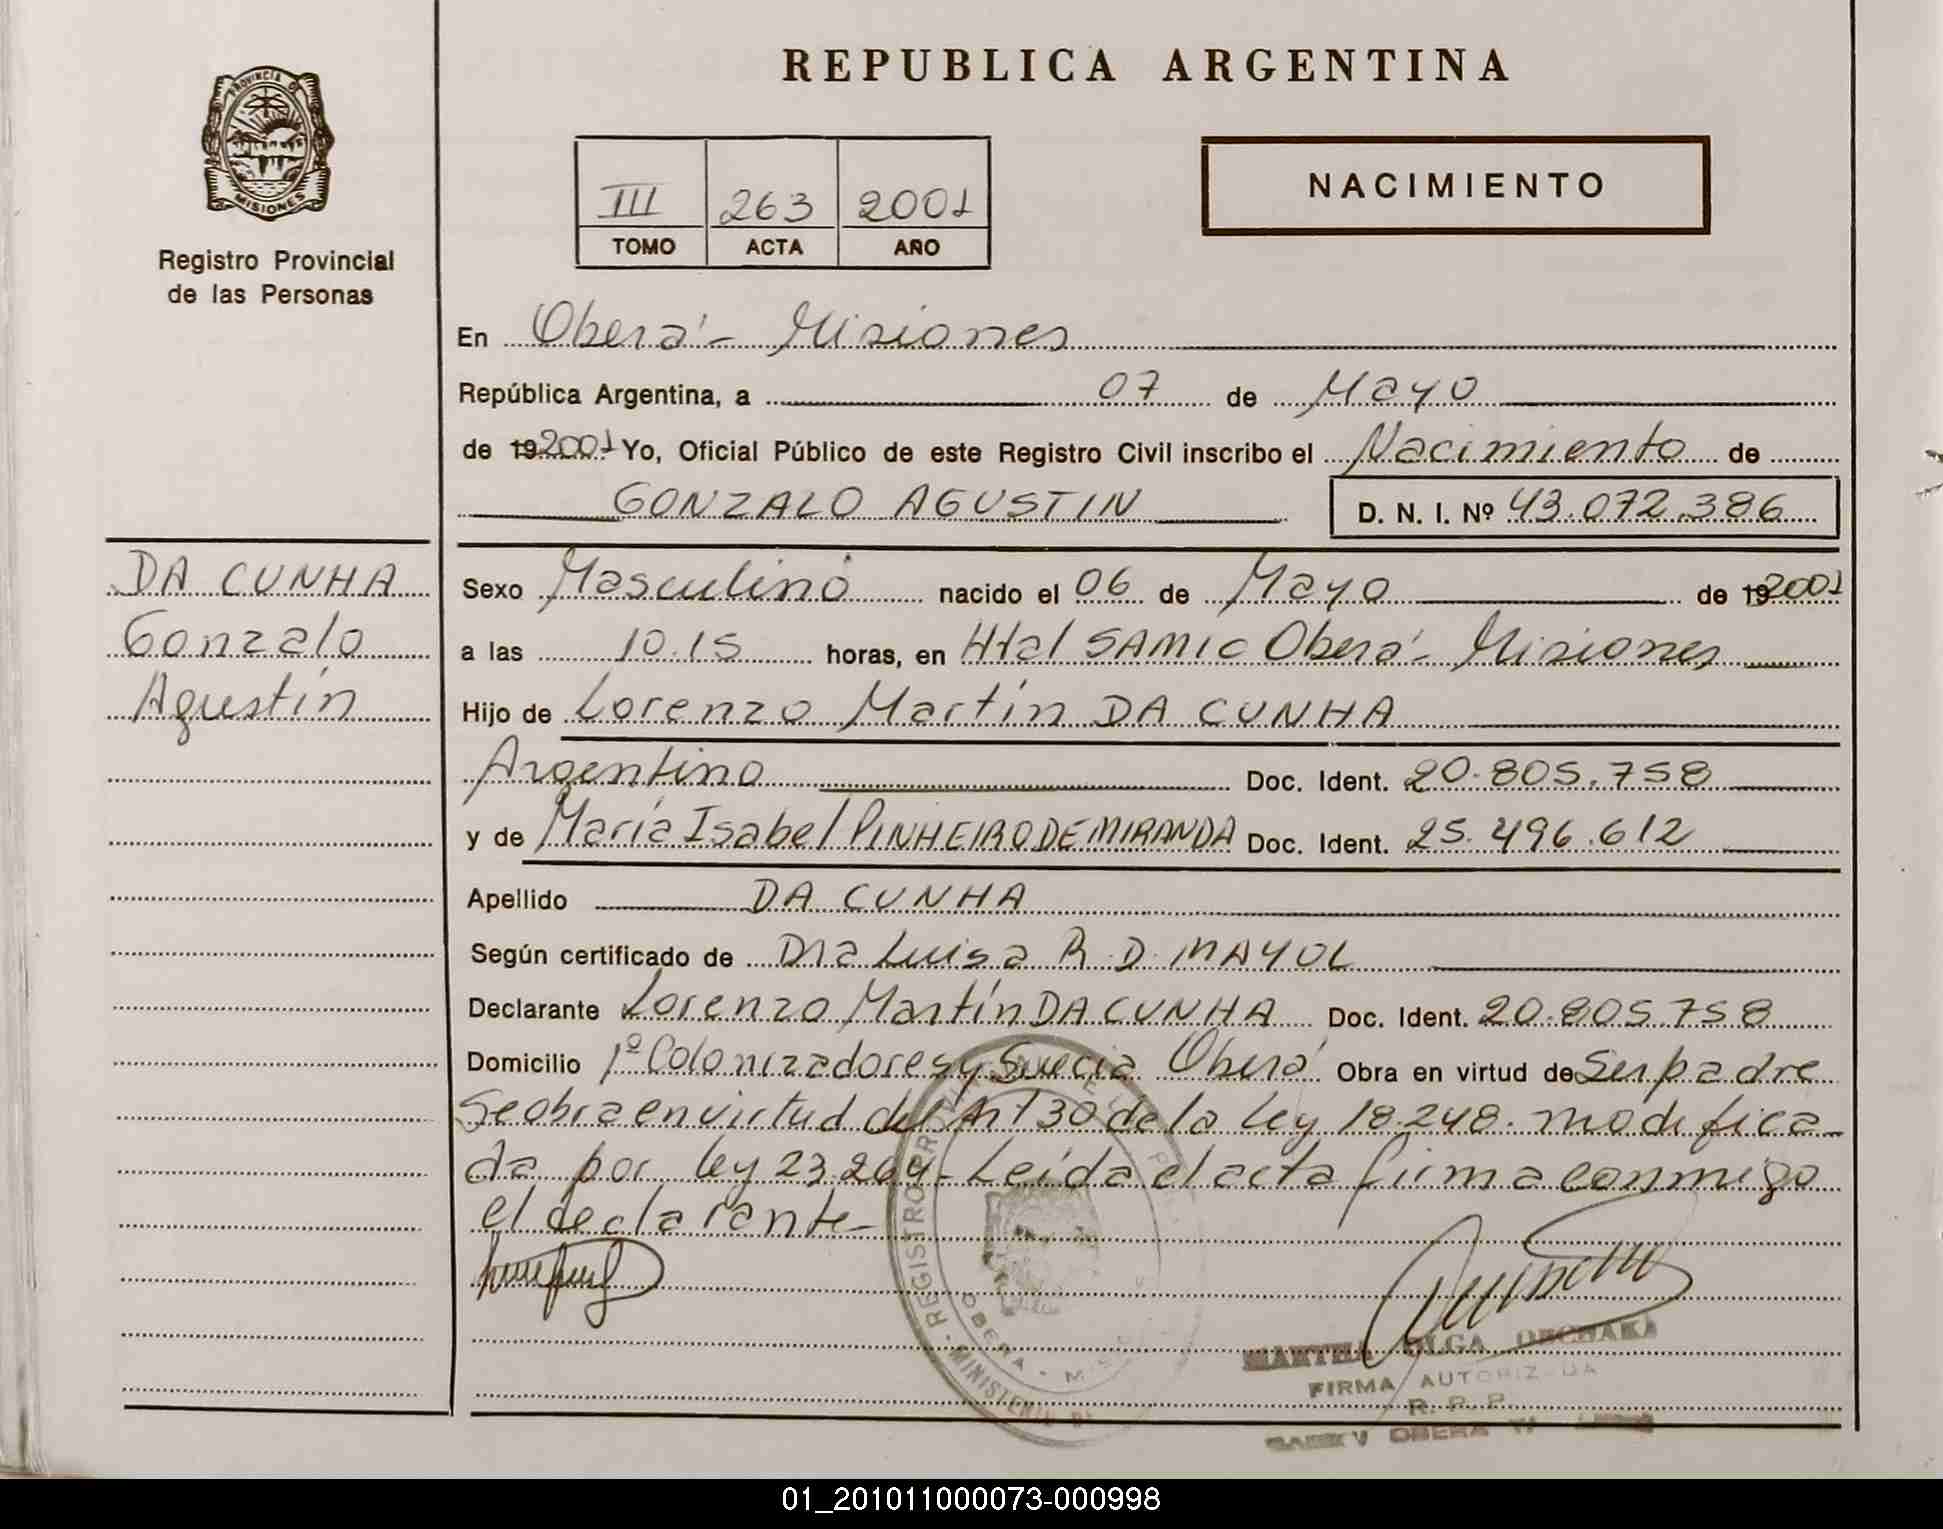 REPUBLICA ARGENTINA
PROVINCIA DE
MISIONES
Registro Provincial
de las Personas
III 263 2001
TOMO ACTA AÑO
NACIMIENTO
En Oberá - Misiones
República Argentina, a 07 de Mayo
de 19 2001 Yo, Oficial Público de este Registro Civil inscribo el Nacimiento de
GONZALO AGUSTIN D. N. I. Nº 43.072.386
DA CUNHA
Gonzalo
Agustín
Sexo Masculino nacido el 06 de Mayo de 19 2001
a las 10.15 horas, en Htal SAMIC Oberá - Misiones
Hijo de Lorenzo Martín DA CUNHA
Argentino Doc. Ident. 20.805.758
y de María Isabel PINHEIRO DE MIRANDA Doc. Ident. 25.496.612
Apellido DA CUNHA
Según certificado de Dra Luisa R. D. MAYOL
Declarante Lorenzo Martín DA CUNHA Doc. Ident. 20.805.758
Domicilio 1º Colonizadores y Suecia Oberá Obra en virtud de Ser padre
Se obra en virtud del Art 30 de la Ley 18.248. modifica-
da por Ley 23.264 - Leída el acta firma conmigo
el declarante -
REGISTRO
OBERA
MINISTERIO
MARTHA OLGA
FIRMA AUTORIZADA
R. P. P.
OBERA
01_201011000073-000998